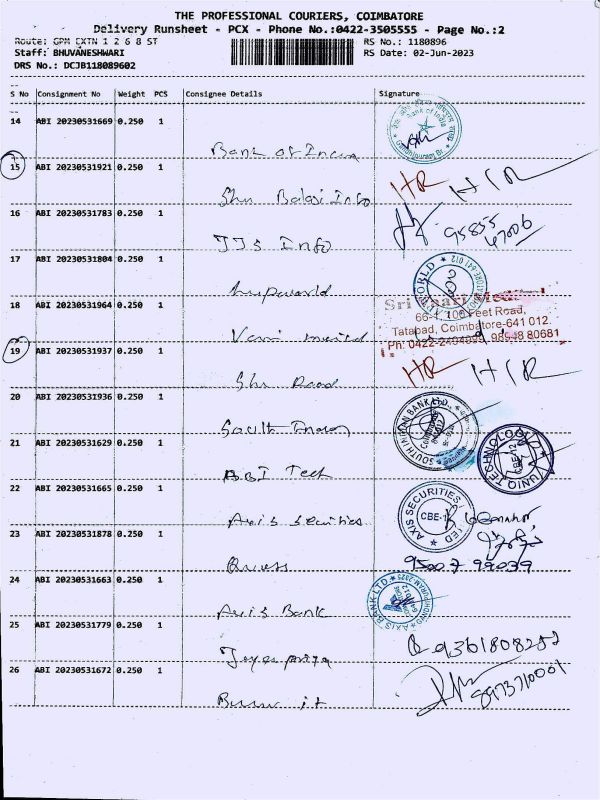 THE PROFESSIONAL COURIERS, COIMBATORE
Delivery Runsheet - PCX - Phone No.:0422-3505555 - Page No.:2
Route: GPM EXTN 1 2 6 8 ST RS No.: 1180896
Staff: BHUVANESHWARI RS Date: 02-Jun-2023
DRS No.: DCJB118089602
S No Consignment No Weight PCS Consignee Details Signature
14 ABI 20230531669 0.250 1
Bank of India
15 ABI 20230531921 0.250 1
HR H/R
Shri Balaji Info
16 ABI 20230531783 0.250 1
95855
47006
JJS Info
17 ABI 20230531804 0.250 1
18 ABI 20230531964 0.250 1
Sri Hari
66-1, 100 Feet Road,
Tatabad, Coimbatore-641 012.
Ph: 0422-2494899, 98948 80681
19 ABI 20230531937 0.250 1
HR H/R
20 ABI 20230531936 0.250 1
SOUTH INDIAN BANK LTD.
South Indian
21 ABI 20230531629 0.250 1
UNIQ TECHNOLOGY
CBE-12
ABI Tech
22 ABI 20230531665 0.250 1
AXIS SECURITIES
CBE-1
Axis Securities
23 ABI 20230531878 0.250 1
95007 99039
Quess
24 ABI 20230531663 0.250 1
AXIS BANK LTD.
Axis Bank
25 ABI 20230531779 0.250 1
9361808252
26 ABI 20230531672 0.250 1
8973710001